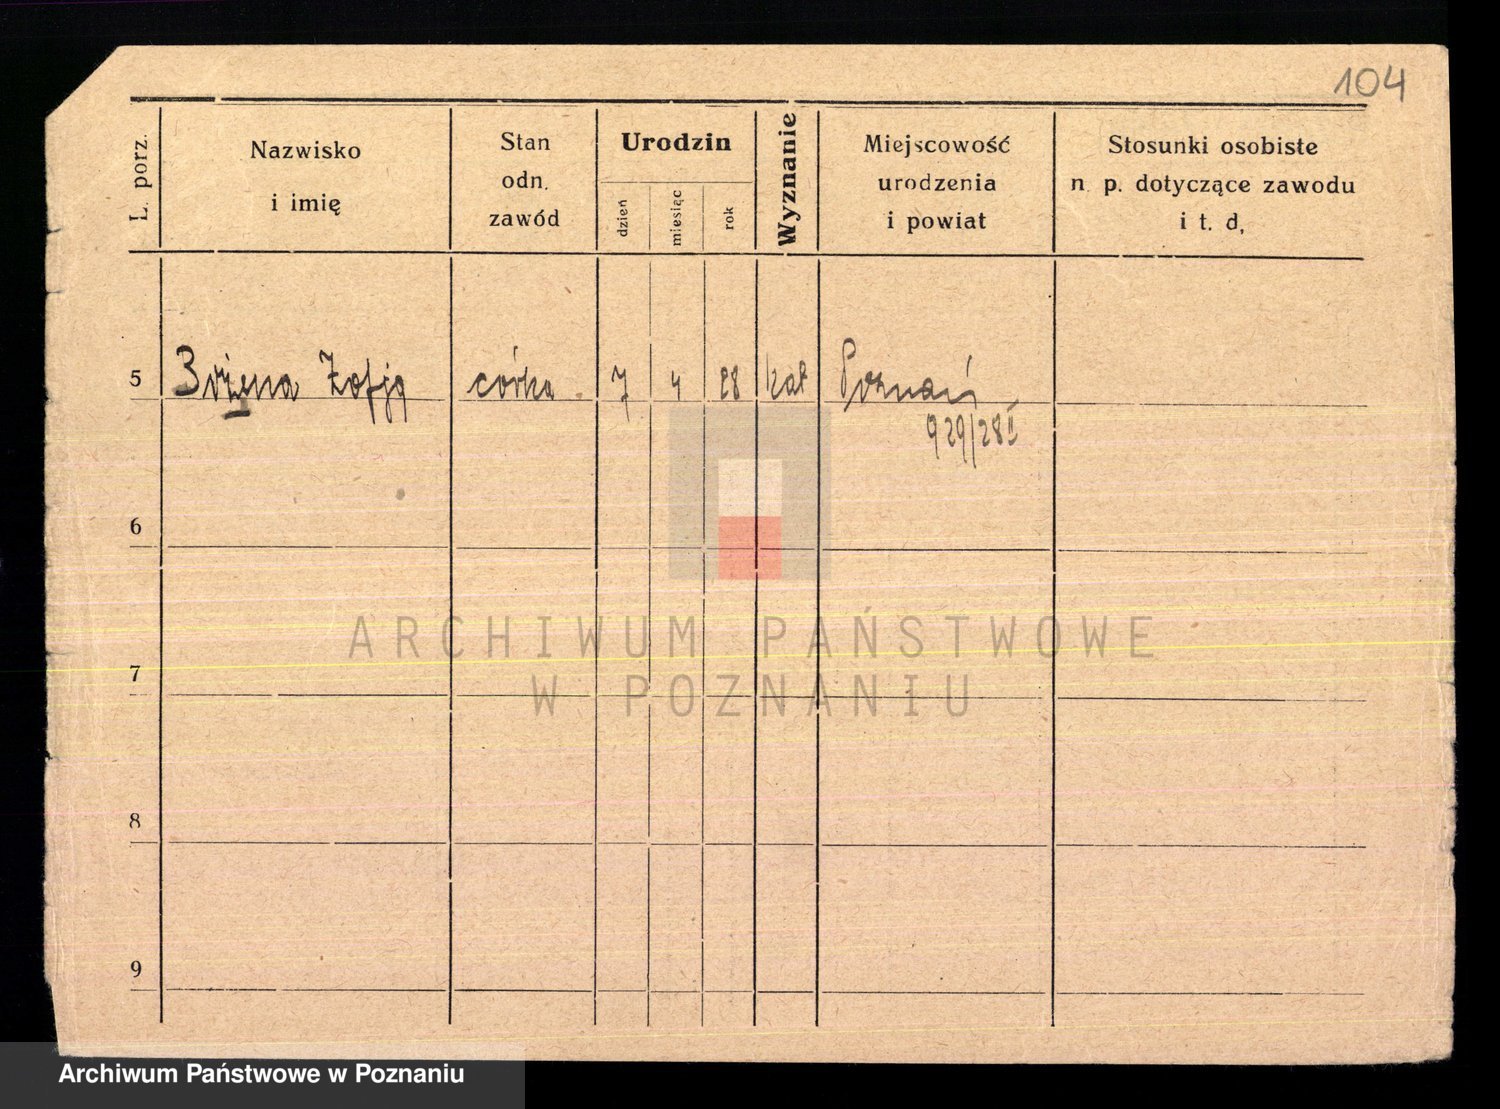 104
L. porz.
Nazwisko
i imię
Stan
odn.
zawód
Urodzin
dzień
miesiąc
rok
Wyznanie
Miejscowość
urodzenia
i powiat
Stosunki osobiste
n. p. dotyczące zawodu
i t. d,
5 Bożena Zofja córka 7 4 28 kat Poznań
929/28 II
6
7
8
9
ARCHIWUM PAŃSTWOWE
W POZNANIU
Archiwum Państwowe w Poznaniu